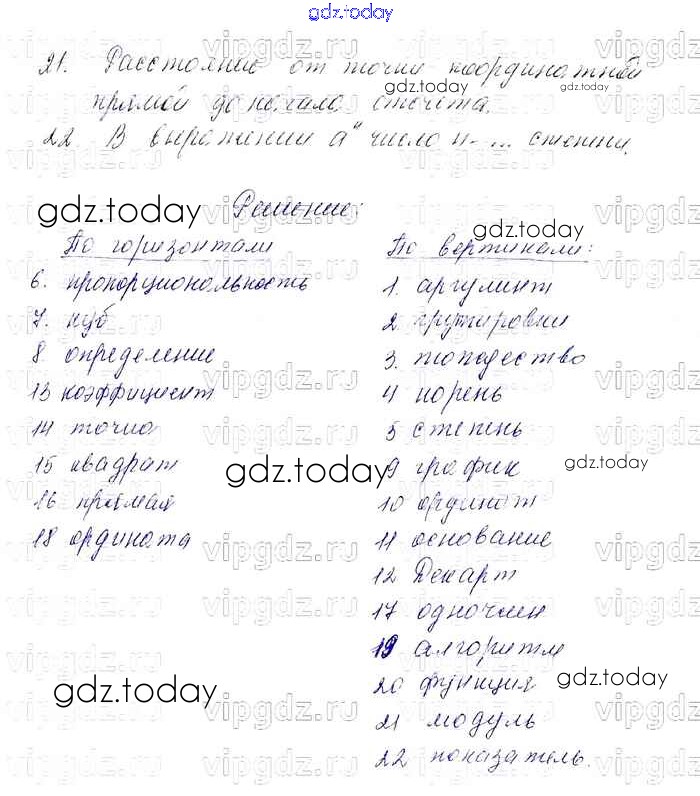 gdz.today
21. Расстояние от точки координатной
прямой до начала отсчета.
22. В выражении aⁿ число n - ... степени.
Решение:
По горизонтали
6. пропорциональность
7. куб
8 определение
13 коэффициент
14 точка
15 квадрат
16 прямая
18 ордината
По вертикали:
1. аргумент
2 группировки
3. тождество
4 корень
5 степень
9 график
10 ординат
11 основание
12 Декарт
17 одночлен
19 алгоритм
20 функция
21 модуль
22 показатель.